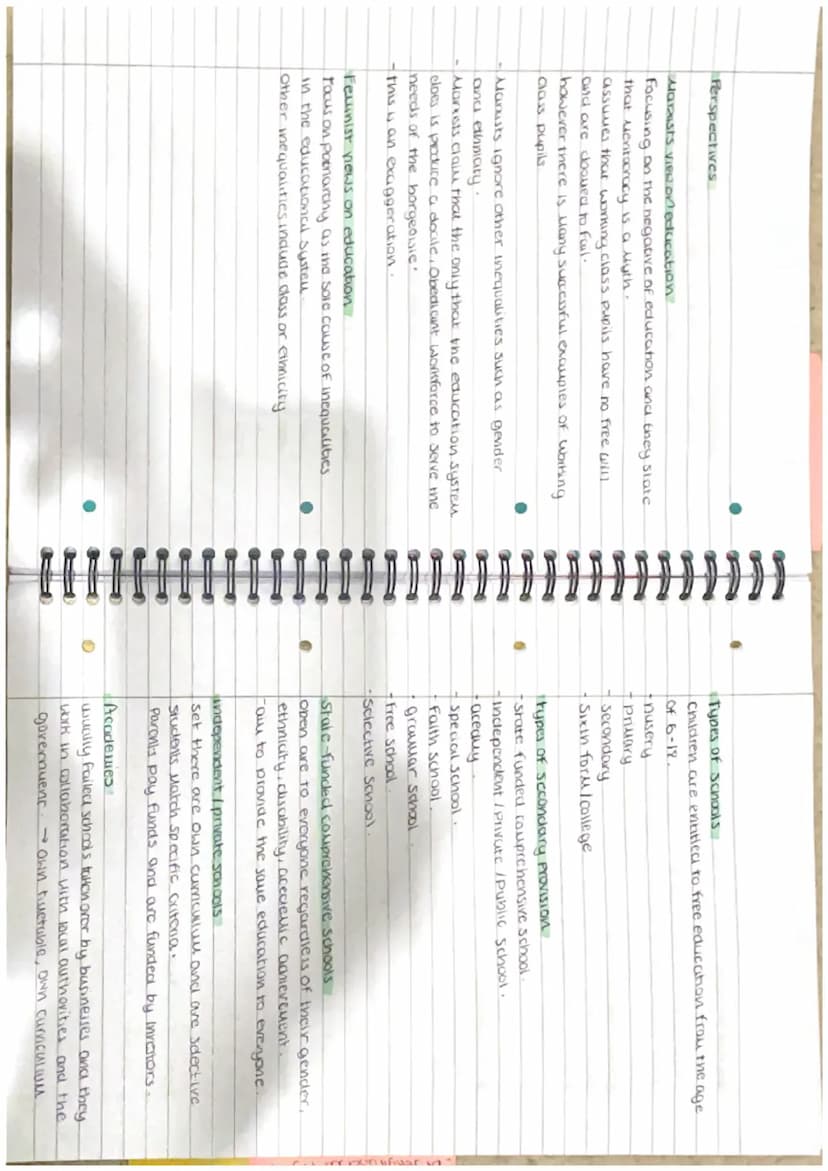 Perspectives
Marxists view on education
Focusing on the negative of education and they state
that Meritocracy is a Myth.
assumes that working class pupils have no free will
and are doomed to fail.
however there is Many successful examples of working
class pupils
- Marxists ignore other inequalities such as gender
and ethnicity.
- Marxists claim that the only that the education system
does is produce a docile, Obediant workforce to serve the
needs of the borgeoisie.
- this is an exaggeration.
Feminist views on education
Focus on patriarchy as the sole cause of inequalities
in the educational system.
other inequalities include class or ethnicity
Types of schools
Children are entitled to free education from the age
of 5-18.
- nusery
- primary
- secondary
- sixth form/college
types of secondary provision
- state funded comprehensive school.
- Independent / Private / Public School.
- acedmy.
- special school.
- faith school.
- grammar school.
- free school.
- selective school.
State-funded comprehensive schools
open are to everyone regardless of their gender,
ethnicity, disability, acedemic achievement.
- aim to provide the same education to everyone.
independent / private schools
set there are own curriculum and are selective
students match specific criteria.
Parents pay funds and are funded by investors.
Academies
usually failed schools taken over by businesses and they
work in collaboration with local authorities and the
government. → own timetable, own curriculum